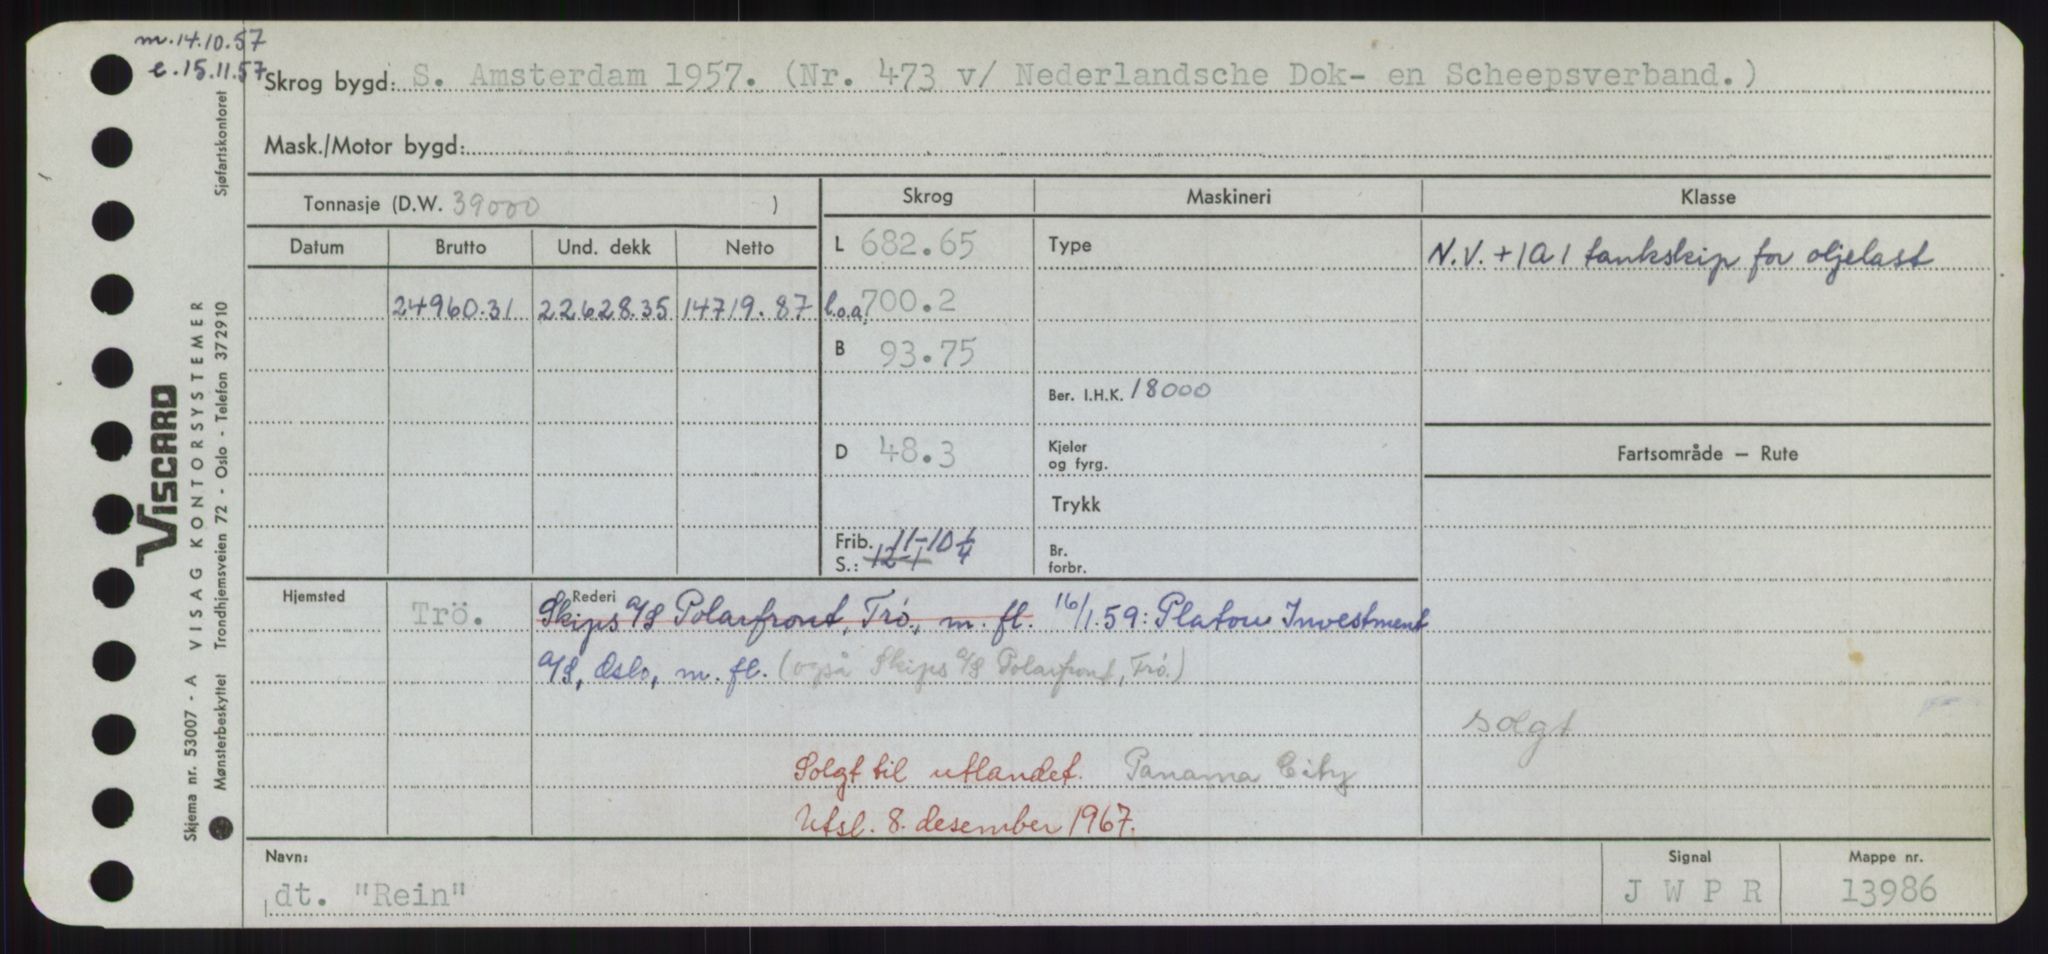 m. 14.10.57
e. 15.11.57
Skrog bygd: S. Amsterdam 1957. (Nr. 473 v/ Nederlandsche Dok- en Scheepsverband.)
Mask./Motor bygd:
Tonnasje (D.W. 39000 )
Skrog
Maskineri
Klasse
Datum Brutto Und. dekk Netto
L 682.65
Type
N.V. +1A1 tankskip for oljelast
24960.31 22628.35 14719.87
l.o.a. 700.2
B 93.75
Ber. I.H.K. 18000
D 48.3
Kjeler
og fyrg.
Fartsområde — Rute
Trykk
Frib. 11-10 1/4
S.: 12-1
Br.
forbr.
Hjemsted Trö.
Rederi
Skips A/S Polarfront, Trö., m. fl. 16/1.59: Platou Investment
A/S, Oslo, m. fl. (også Skips A/S Polarfront, Trö.)
solgt
Solgt til utlandet. Panama City
Utsl. 8. desember 1967.
Navn:
dt. "Rein"
Signal
J W P R
Mappe nr.
13986
VISCARD
VISAG KONTORSYSTEMER
Skjema nr. 53007 - A
Mønsterbeskyttet Trondhjemsveien 72 - Oslo - Telefon 372910 Sjøfartskontoret